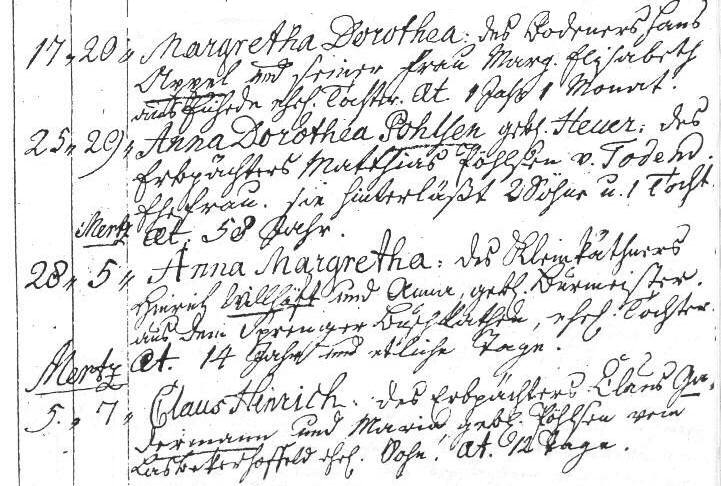 17. 20. Margretha Dorothea: des Bodeners Hans
Appel und seiner Frau Marg. Elisabeth
aus ehel. Tochter. Æt. 1 Jahr 1 Monat.
25. 29. Anna Dorothea Pöhlsen gebh. Heuer: des
Erbpächters Matthias Pöhlsen v. Todend.
Ehefrau. sie hinterläßt 2 Söhne u. 1 Tocht.
Mertz Æt. 58 Jahr.
28. 5. Anna Margretha: des Kleinkäthners
Hinrich Willhöft und Anna, gebh. Burmeister.
aus dem Sprenger Buschkathen, ehel. Tochter.
Æt. 14 Jahr und etliche Tage.
Mertz
5. 7. Claus Hinrich. des Erbpächters Claus Ga-
dermann und Maria gebh. Pöhlsen vom
Lasbekerhoffeld ehel. Sohn. Æt. 12 Tage.